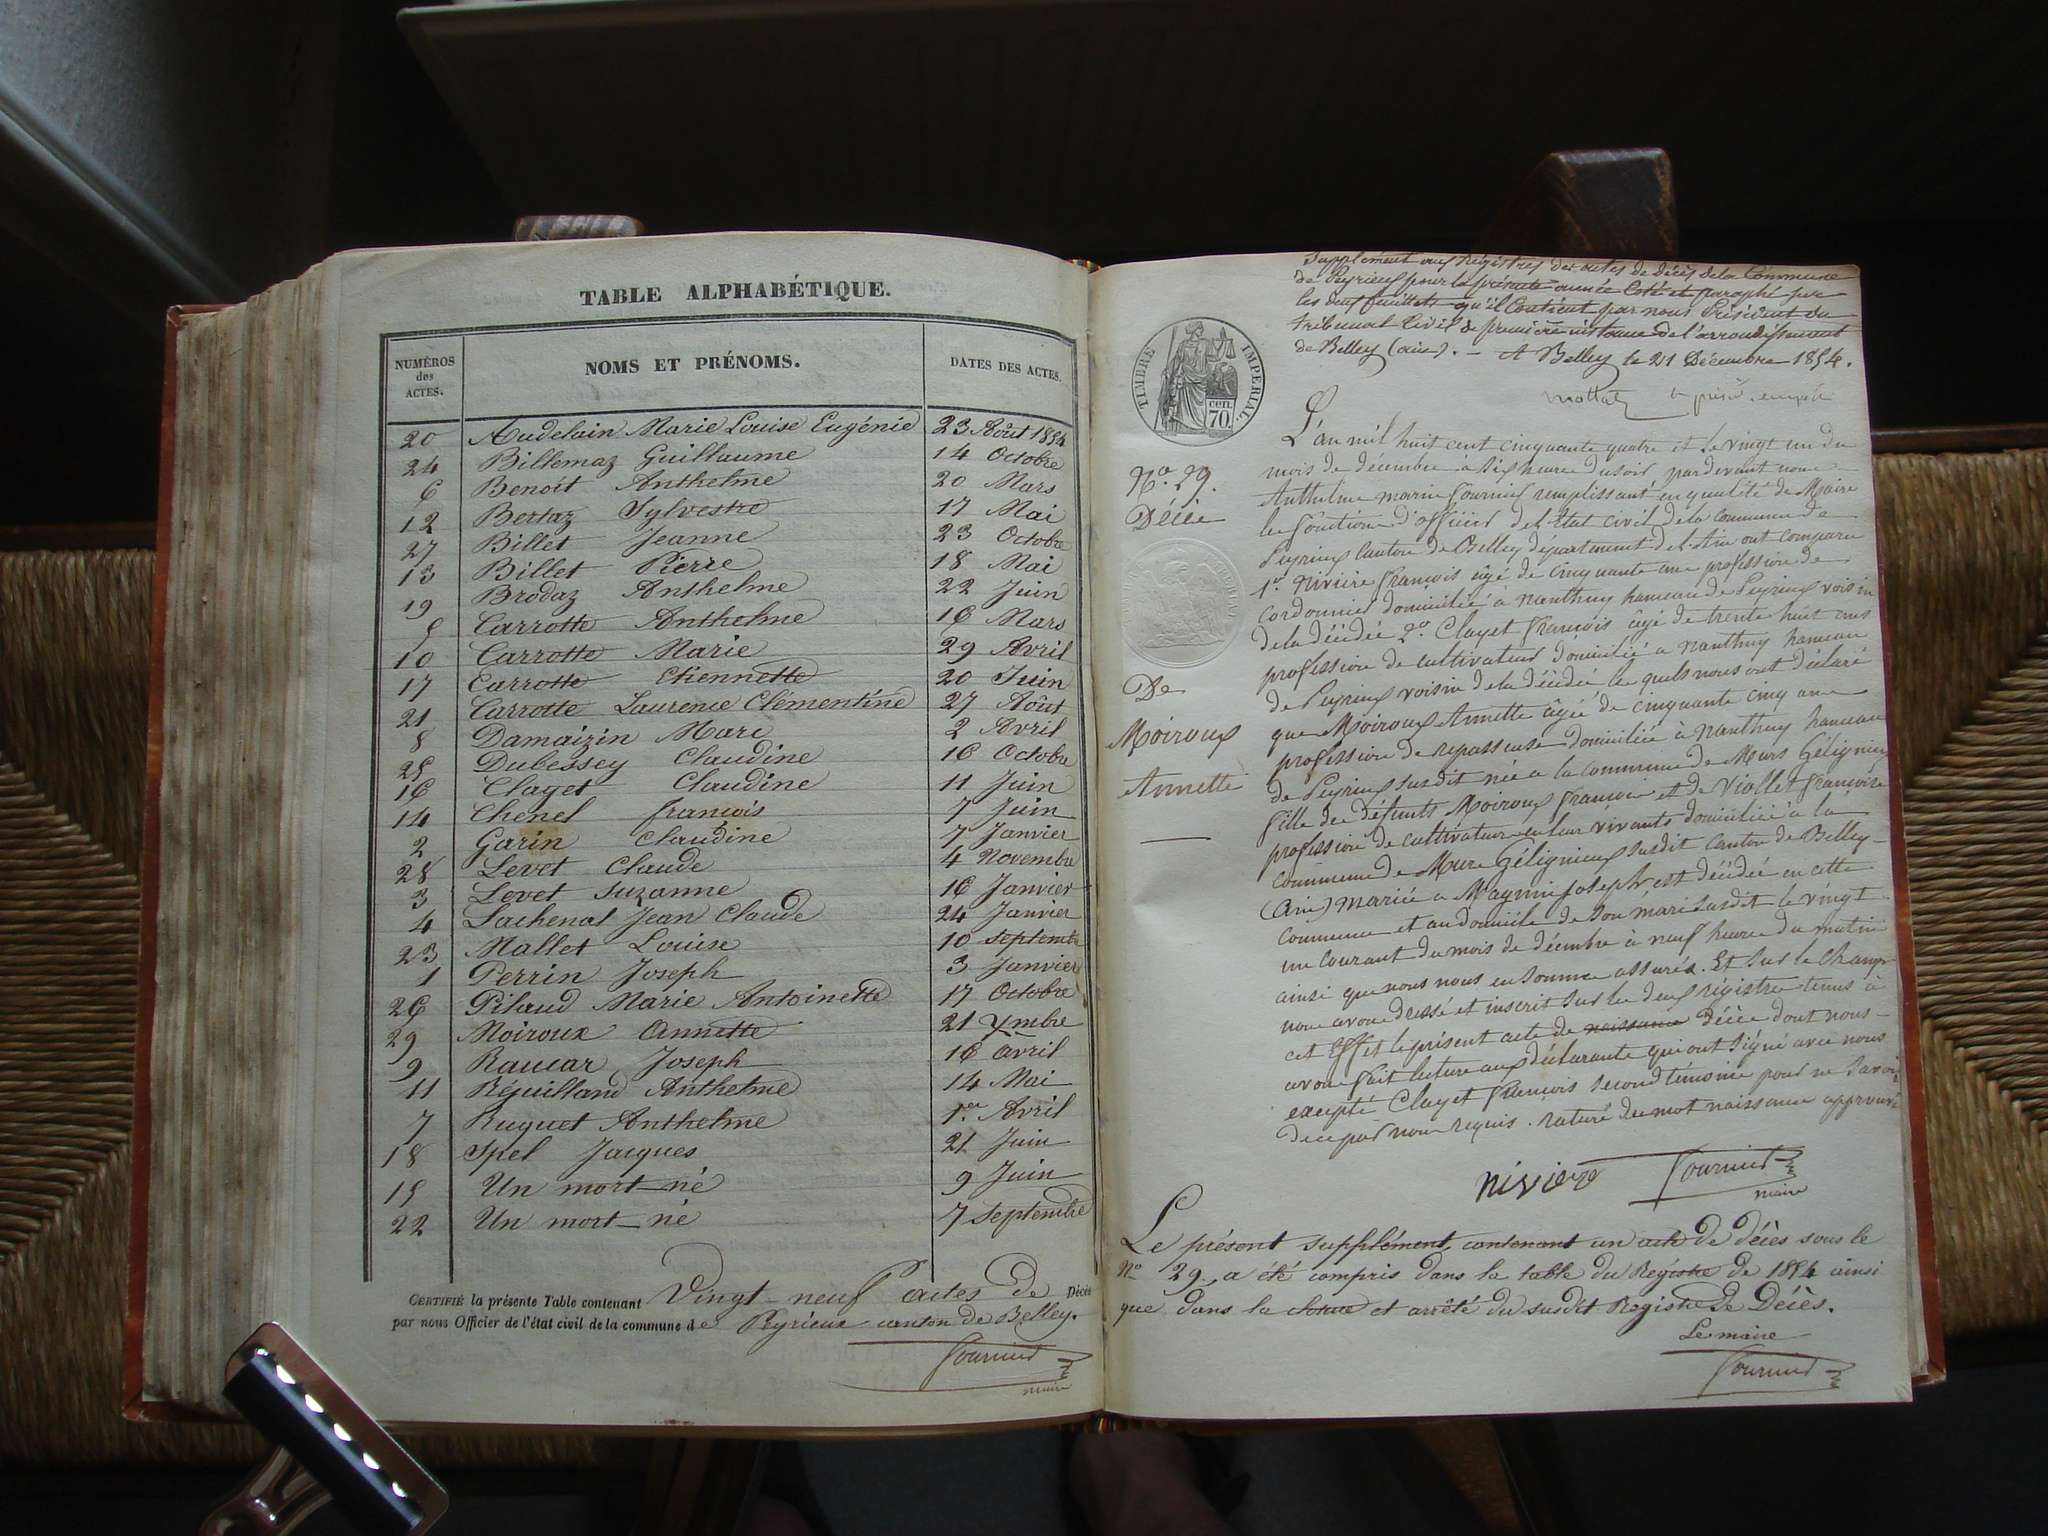 TABLE ALPHABÉTIQUE.
NUMÉROS des ACTES. NOMS ET PRÉNOMS. DATES DES ACTES.
20 Audelain Marie Louise Eugénie 23 Août 1854
24 Billemaz Guillaume 14 Octobre
6 Benoit Anthelme 20 Mars
12 Bertaz Sylvestre 17 Mai
27 Billet Jeanne 23 Octobre
13 Billet Pierre 18 Mai
19 Brodaz Anthelme 22 Juin
5 Carrotte Anthelme 16 Mars
10 Carrotte Marie 29 Avril
17 Carrotte Etiennette 20 Juin
21 Carrotte Laurence Clémentine 27 Août
8 Damaizin Marc 2 Avril
25 Dubessey Claudine 16 Octobre
16 Clayet Claudine 11 Juin
14 Chenel françois 7 Juin
2 Garin Claudine 7 Janvier
28 Levet Claude 4 Novembre
3 Levet Suzanne 16 Janvier
4 Lachenal Jean Claude 24 Janvier
23 Mallet Louise 10 Septembre
1 Perrin Joseph 3 Janvier
26 Pilaud Marie Antoinette 17 Octobre
29 Moiroux Annette 21 Xmbre
9 Raucar Joseph 16 Avril
11 Réguilland Anthelme 14 Mai
7 Ruguet Anthelme 1er Avril
18 Spel Jacques 21 Juin
15 Un mort-né 9 Juin
22 Un mort-né 7 Septembre
CERTIFIÉ la présente Table contenant Vingt-neuf actes de Décès
par nous Officier de l'état civil de la commune de Peyrieux canton de Belley.
Fournier
maire
Supplément aux Régistres des actes de décès de la Commune
de Peyrieux pour la présente année Coté et paraphé sur
les deux feuillets qu'il Contient par nous Président du
tribunal Civil de première instance de l'arrondissement
de Belley (ain). - A Belley le 21 Décembre 1854.
TIMBRE IMPERIAL.
CEN. 70
No. 29.
Décès
De
Moiroux
Annette
L'an mil huit cent cinquante quatre et le vingt un du
mois de décembre à six heure du soir pardevant nous
Anthelme marin Fournier remplissant en qualité de Maire
les fonctions d'officier de l'Etat civil de la commune de
Peyrieux Canton de Belley département de l'Ain ont comparu
1er. Rivière françois âgé de cinquante ans profession de
cordonnier domicilié à Nanthuy hameau de Peyrieux voisin
de la décédée 2o. Clayet françois âgé de trente huit ans
profession de cultivateur domicilié à Nanthuy hameau
de Peyrieux voisin de la décédée les quels nous ont déclaré
que Moiroux Annette âgée de cinquante cinq ans
profession de repasseuse domiciliée à Nanthuy hameau
de Peyrieux susdit née à la commune de Murs Gélignieux
fille des défunts Moiroux françois et de Viollet françoise
profession de cultivateurs en leur vivants domiciliés à la
commune de Murs Gélignieux susdit canton de Belley
(Ain) mariée à Maynin Joseph, est décédée en cette
commune et au domicile de son mari susdit le vingt
un courant du mois de décembre à neuf heures du matin
ainsi que nous nous en sommes assurés. Et sur le champ
nous avons dressé et inscrit sur les deux registres tenus à
cet effet le présent acte de naissance Décès dont nous
avons fait lecture aux déclarants qui ont signé avec nous
excepté Clayet françois second témoins pour ne savoir
de ce par nous requis. raturé du mot naissance approuvé
Rivière Fournier
maire
Le présent supplément, contenant un acte de décès sous le
No 29, a été compris dans la table du Registre de 1854 ainsi
que dans la cloture et arrêté du susdit Registre de Décès.
Le maire
Fournier